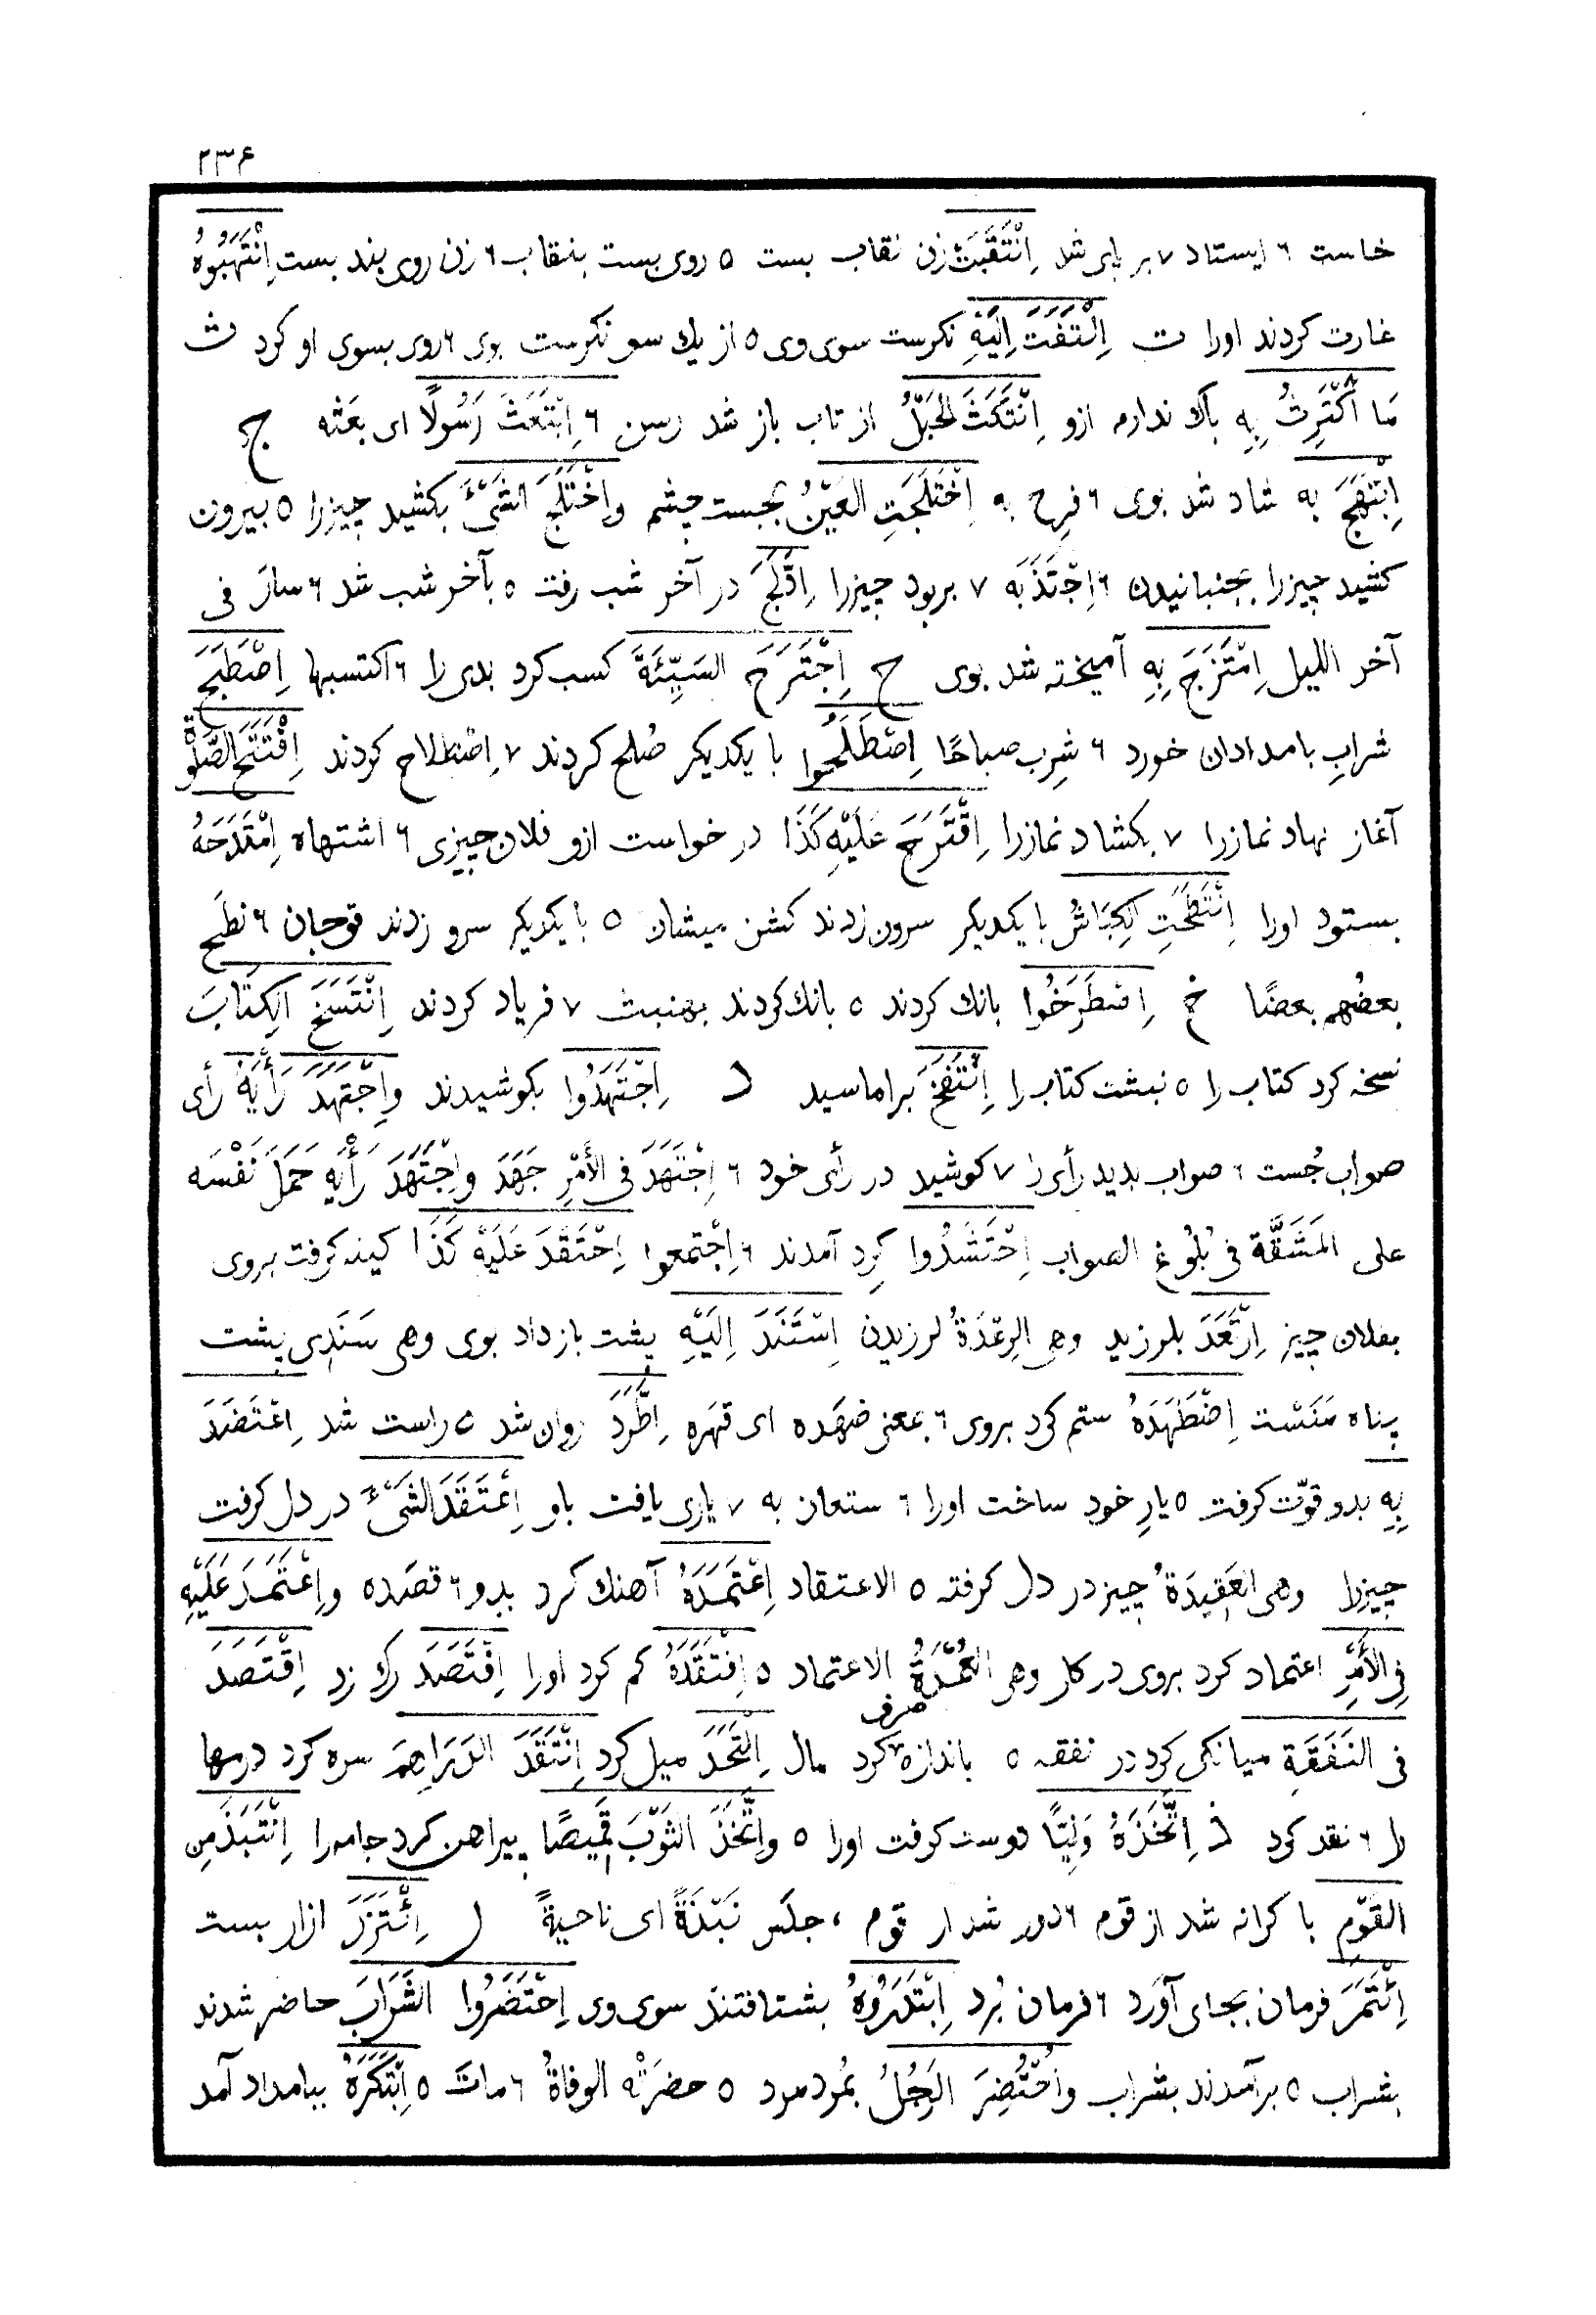 ۲۳۶
خاست ۶ ایستاد ۷ بر پای شد اِنْتَقَبَتْ زن نقاب بست ۵ روی بست بنقاب ۶ زن روی بند بست اِنْتَهَبُوهُ
غارت کردند اورا ت اِلْتَفَتَ اِلَیْهِ نکرست سوی وی ۵ از یك سو نکرست بوی ۶ روی بسوی او کرد ث
مَا اَکْتَرِثُ بِهِ باك ندارم ازو اِنْتَکَثَ الحَبْلُ از تاب باز شد رسن ۶ اِبْتَعَثَ رَسُولًا ای بعَثه ج
اِبْتَهَجَ به شاد شد بوی ۶ فرِح به اِخْتَلَجَتِ العَیْنُ بجست چشم و اِخْتَلَجَ الشَیْءَ بکشید چیزرا ۵ بیرون
کشید چیزرا بجنبانیدن ۶ اِجْتَذَبَه ۷ بربود چیزرا اِدَّلَجَ در آخر شب رفت ۵ بآخر شب شد ۶ سارَ فی
آخر اللیل اِمْتَزَجَ بِهِ آمیخته شد بوی ح اِجْتَرَحَ السَیِّئَةَ کسب کرد بدی را ۶ اکتسبها اِصْطَبَحَ
شرابِ بامدادان خورد ۶ شرِب صباحًا اِصْطَلَحُوا با یکدیکر صُلح کردند ۷ اِصْطلاح کردند اِفْتَتَحَ الصَّلٰوةَ
آغاز نهاد نمازرا ۷ بکشاد نمازرا اِقْتَرَحَ عَلَیْهِ کَذَا در خواست ازو فلان چیزی ۶ اشتهاه اِمْتَدَحَهُ
بستود اورا اِنْتَطَحَتِ الکِبَاشُ با یکدیکر سرون زدند کشن میشان ۵ با یکدیکر سرو زدند قوجان ۶ نطَح
بعضُهم بعضًا خ اِصْطَرَخُوا بانك کردند ۵ بانك کردند بهنبث ۷ فریاد کردند اِنْتَسَخَ الکِتَابَ
نسخه کرد کتاب را ۵ نبشت کتاب را اِنْتَفَخَ براماسید د اِجْتَهَدُوا بکوشیدند و اِجْتَهَدَ رَأْیَهُ رأی
صواب جُست ۶ صواب بدید رأی را ۷ کوشید در رأی خود ۶ اِجْتَهَدَ فی الأَمْرِ جَهَدَ و اِجْتَهَدَ رَأْیَهِ حَمَلَ نَفْسَه
علی المَشَقَّة فی بُلُوغِ الصواب اِحْتَشَدُوا کِرد آمدند ۶ اِجْتمعوا اِحْتَقَدَ عَلَیْهِ کَذَا کینه کرفت بروی
بفلان چیز اِرْتَعَدَ بلرزید وهی الرِعْدَةُ لرزیدن اِسْتَنَدَ اِلَیْهِ پشت باز داد بوی وهی سَنَدِی پشت
پناه مَنَسْت اِضْطَهَدَهُ ستم کرد بروی ۶ بمعنی ضهَده ای قهَره اِطَّرَدَ روان شد ۵ راست شد اِعْتَضَدَ
بِهِ بدو قوّت کرفت ۵ یارِ خود ساخت اورا ۶ ستعان به ۷ یاری یافت باو اِعْتَقَدَ الشَیْءَ در دل کرفت
چیزرا وهی العَقِیدَةُ چیز در دل کرفته ۵ الاعتقاد اِعْتَمَدَهُ آهنك کرد بدو ۶ قصَده و اِعْتَمَدَ عَلَیْهِ
فِی الأَمْرِ اعتماد کرد بروی در کار وهی العُمْدَةُ الاعتماد ۵ اِفْتَقَدَهُ کم کرد اورا اِفْتَصَدَ رك زد اِقْتَصَدَ
فی النَفَقَةِ میانکی کرد در نفقه ۵ باندازه صرف کرد مال اِلْتَحَدَ میل کرد اِنْتَقَدَ الدَرَاهِمَ سره کرد درمها
را ۶ نقد کرد ذ اِتَّخَذَهُ وَلِیًّا دوست کرفت اورا ۵ و اِتَّخَذَ الثَوْبَ قَمِیصًا پیراهن کرد جامه را اِنْتَبَذَ مِن
القَوْمِ با کرانه شد از قوم ۶ دور شد ار قوم ، جلَس نَبْذَةً ای ناحیةً ر اِئْتَزَرَ ازار بست
اِئْتَمَرَ فرمان بجای آوَرد ۶ فرمان بُرد اِبْتَدَرُوهُ بشتافتند سوی وی اِحْتَضَرُوا الشَرَابَ حاضر شدند
بشراب ۵ برآمدند بشراب و اُحْتُضِرَ الرَجُلُ بمُرد مرد ۵ حضرَتْه الوفاةُ ۶ ماتَ ۵ اِبْتَکَرَهُ ببامداد آمد